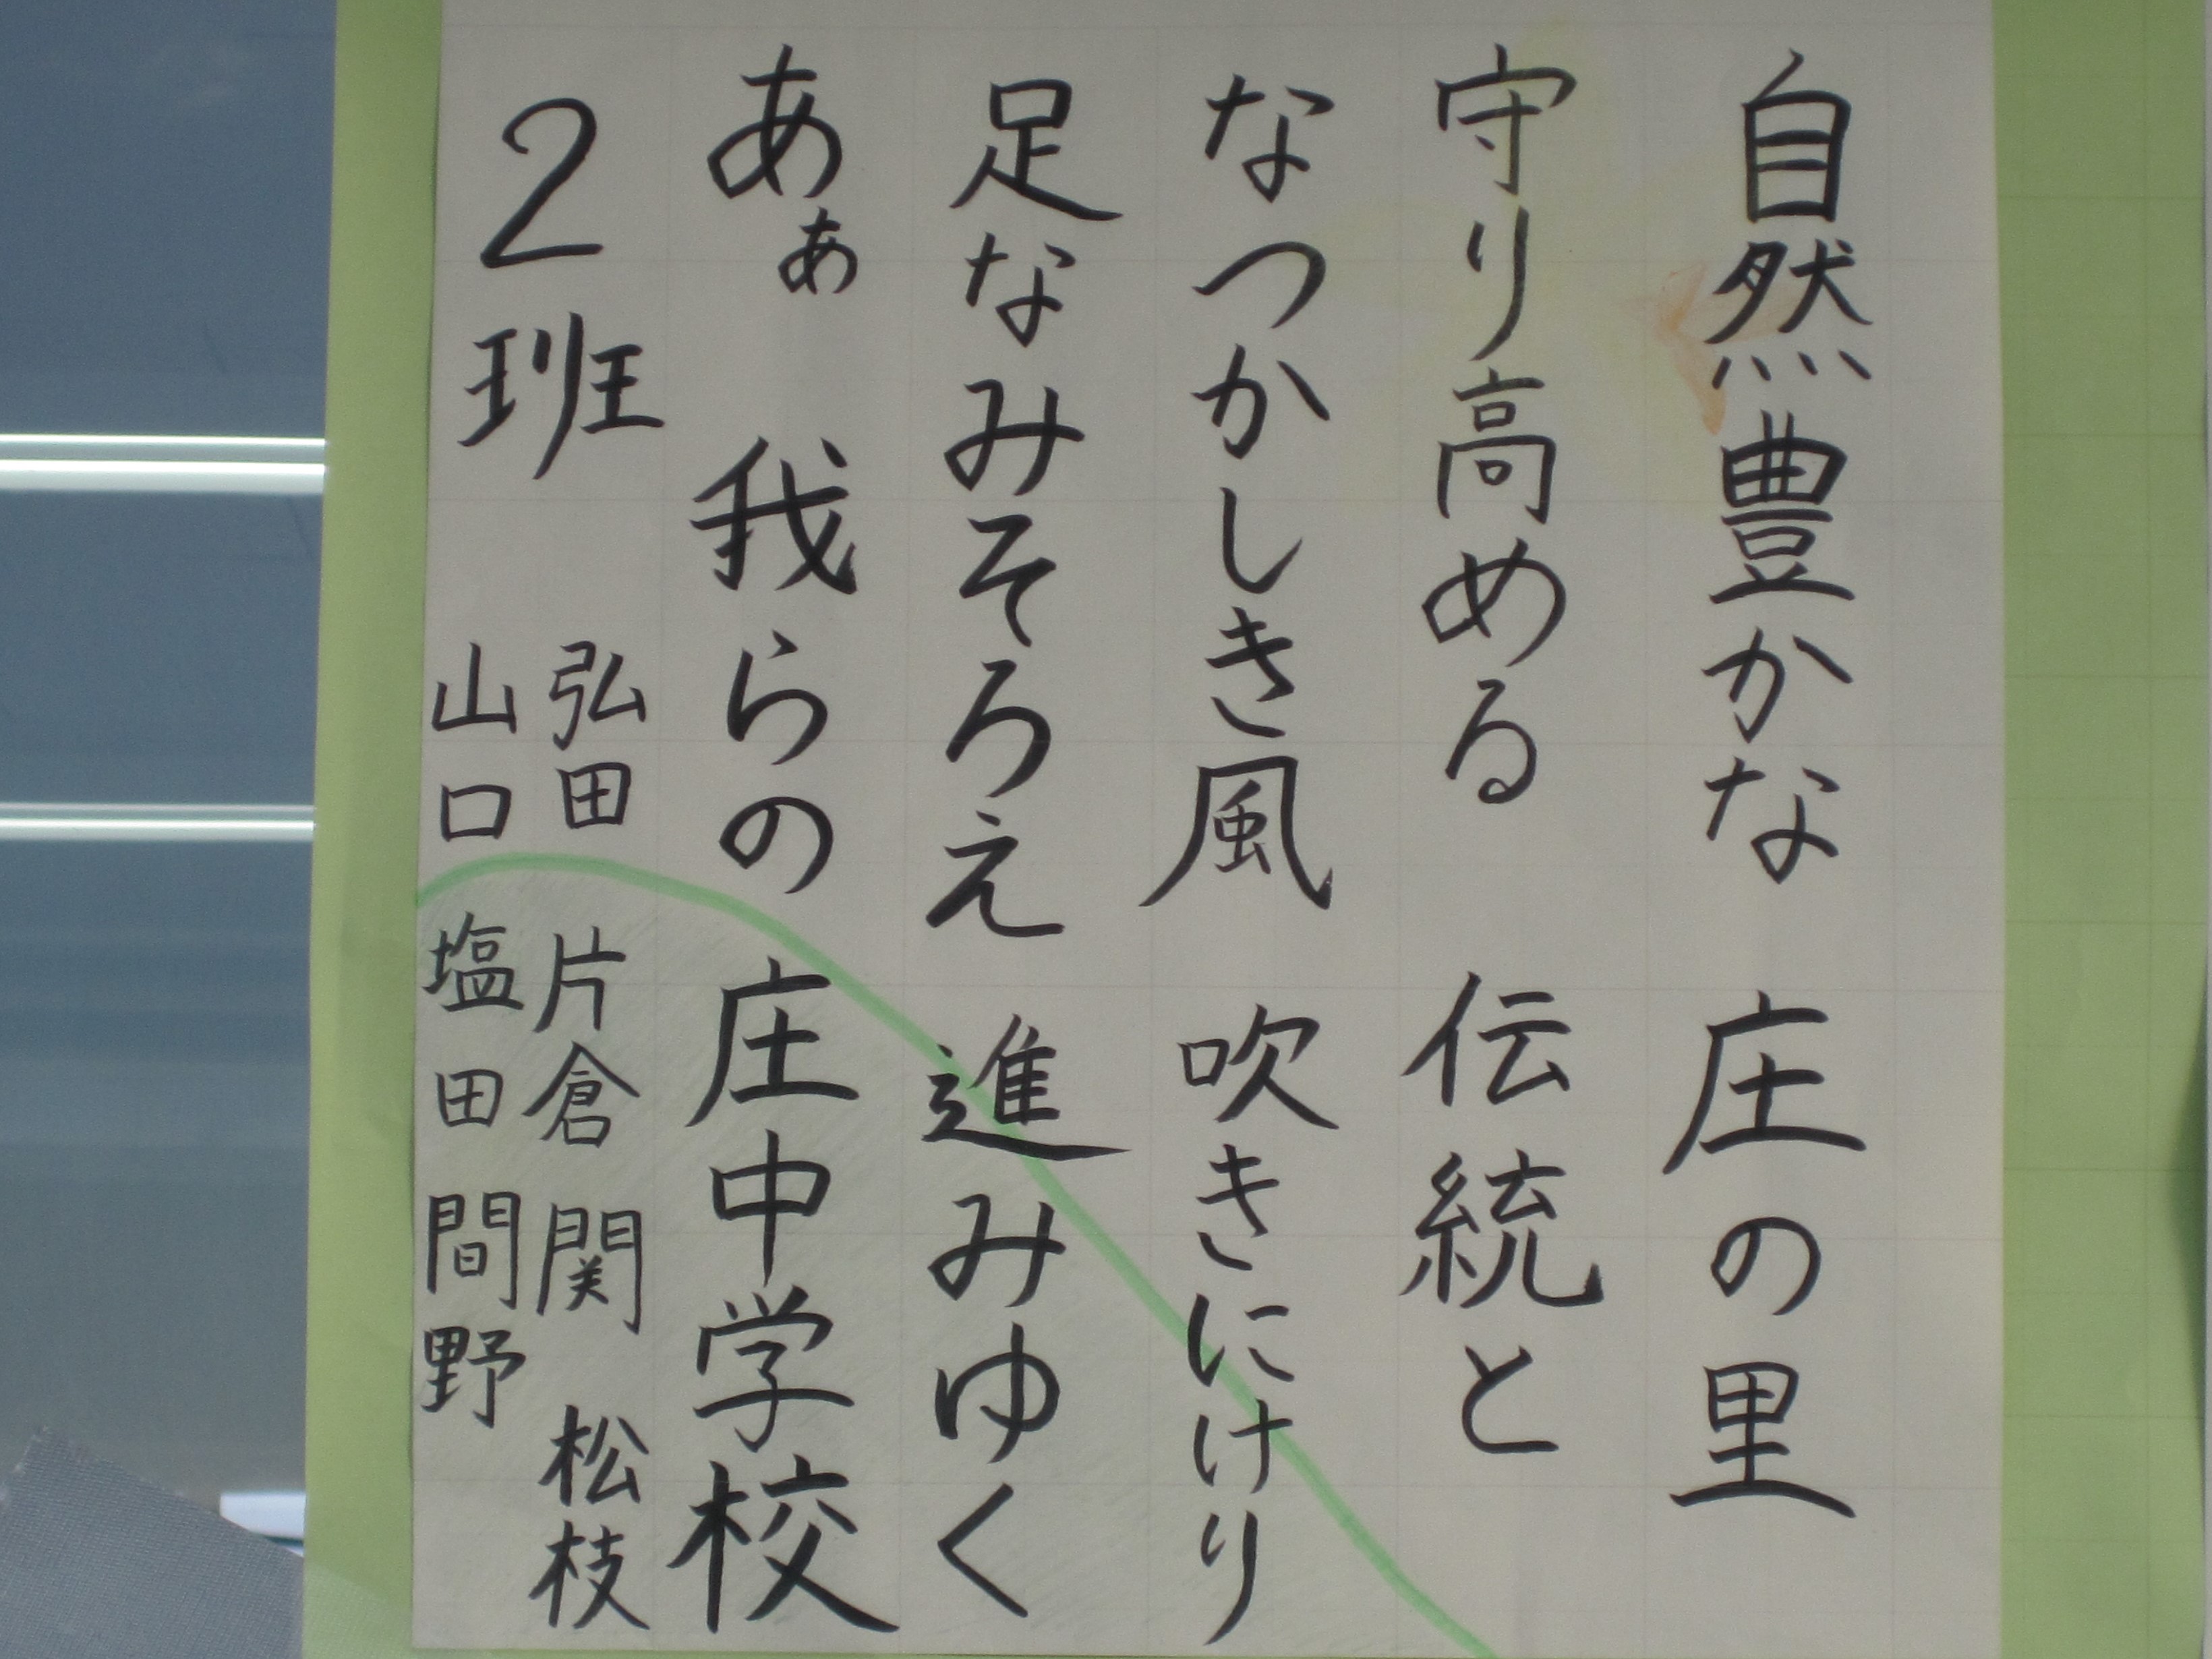 自然豊かな 庄の里
守り高める 伝統と
なつかしき風 吹きにけり
足なみそろえ 進みゆく
あぁ 我らの 庄中学校
2班 弘田 片倉 関 松枝
山口 塩田 間野